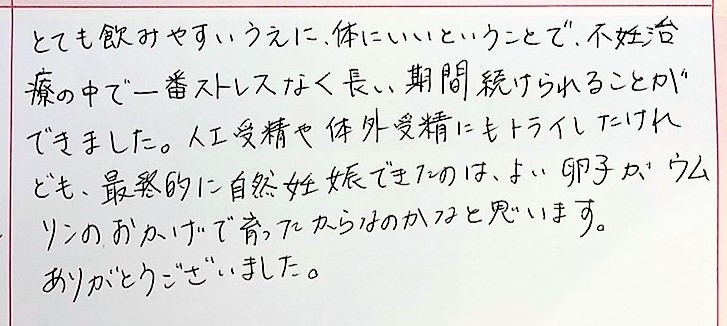 とても飲みやすいうえに、体にいいということで、不妊治
療の中で一番ストレスなく長い期間続けられることが
できました。人工受精や体外受精にもトライしたけれ
ども、最終的に自然妊娠できたのは、よい卵子がウム
リンのおかげで育ったからなのかなと思います。
ありがとうございました。